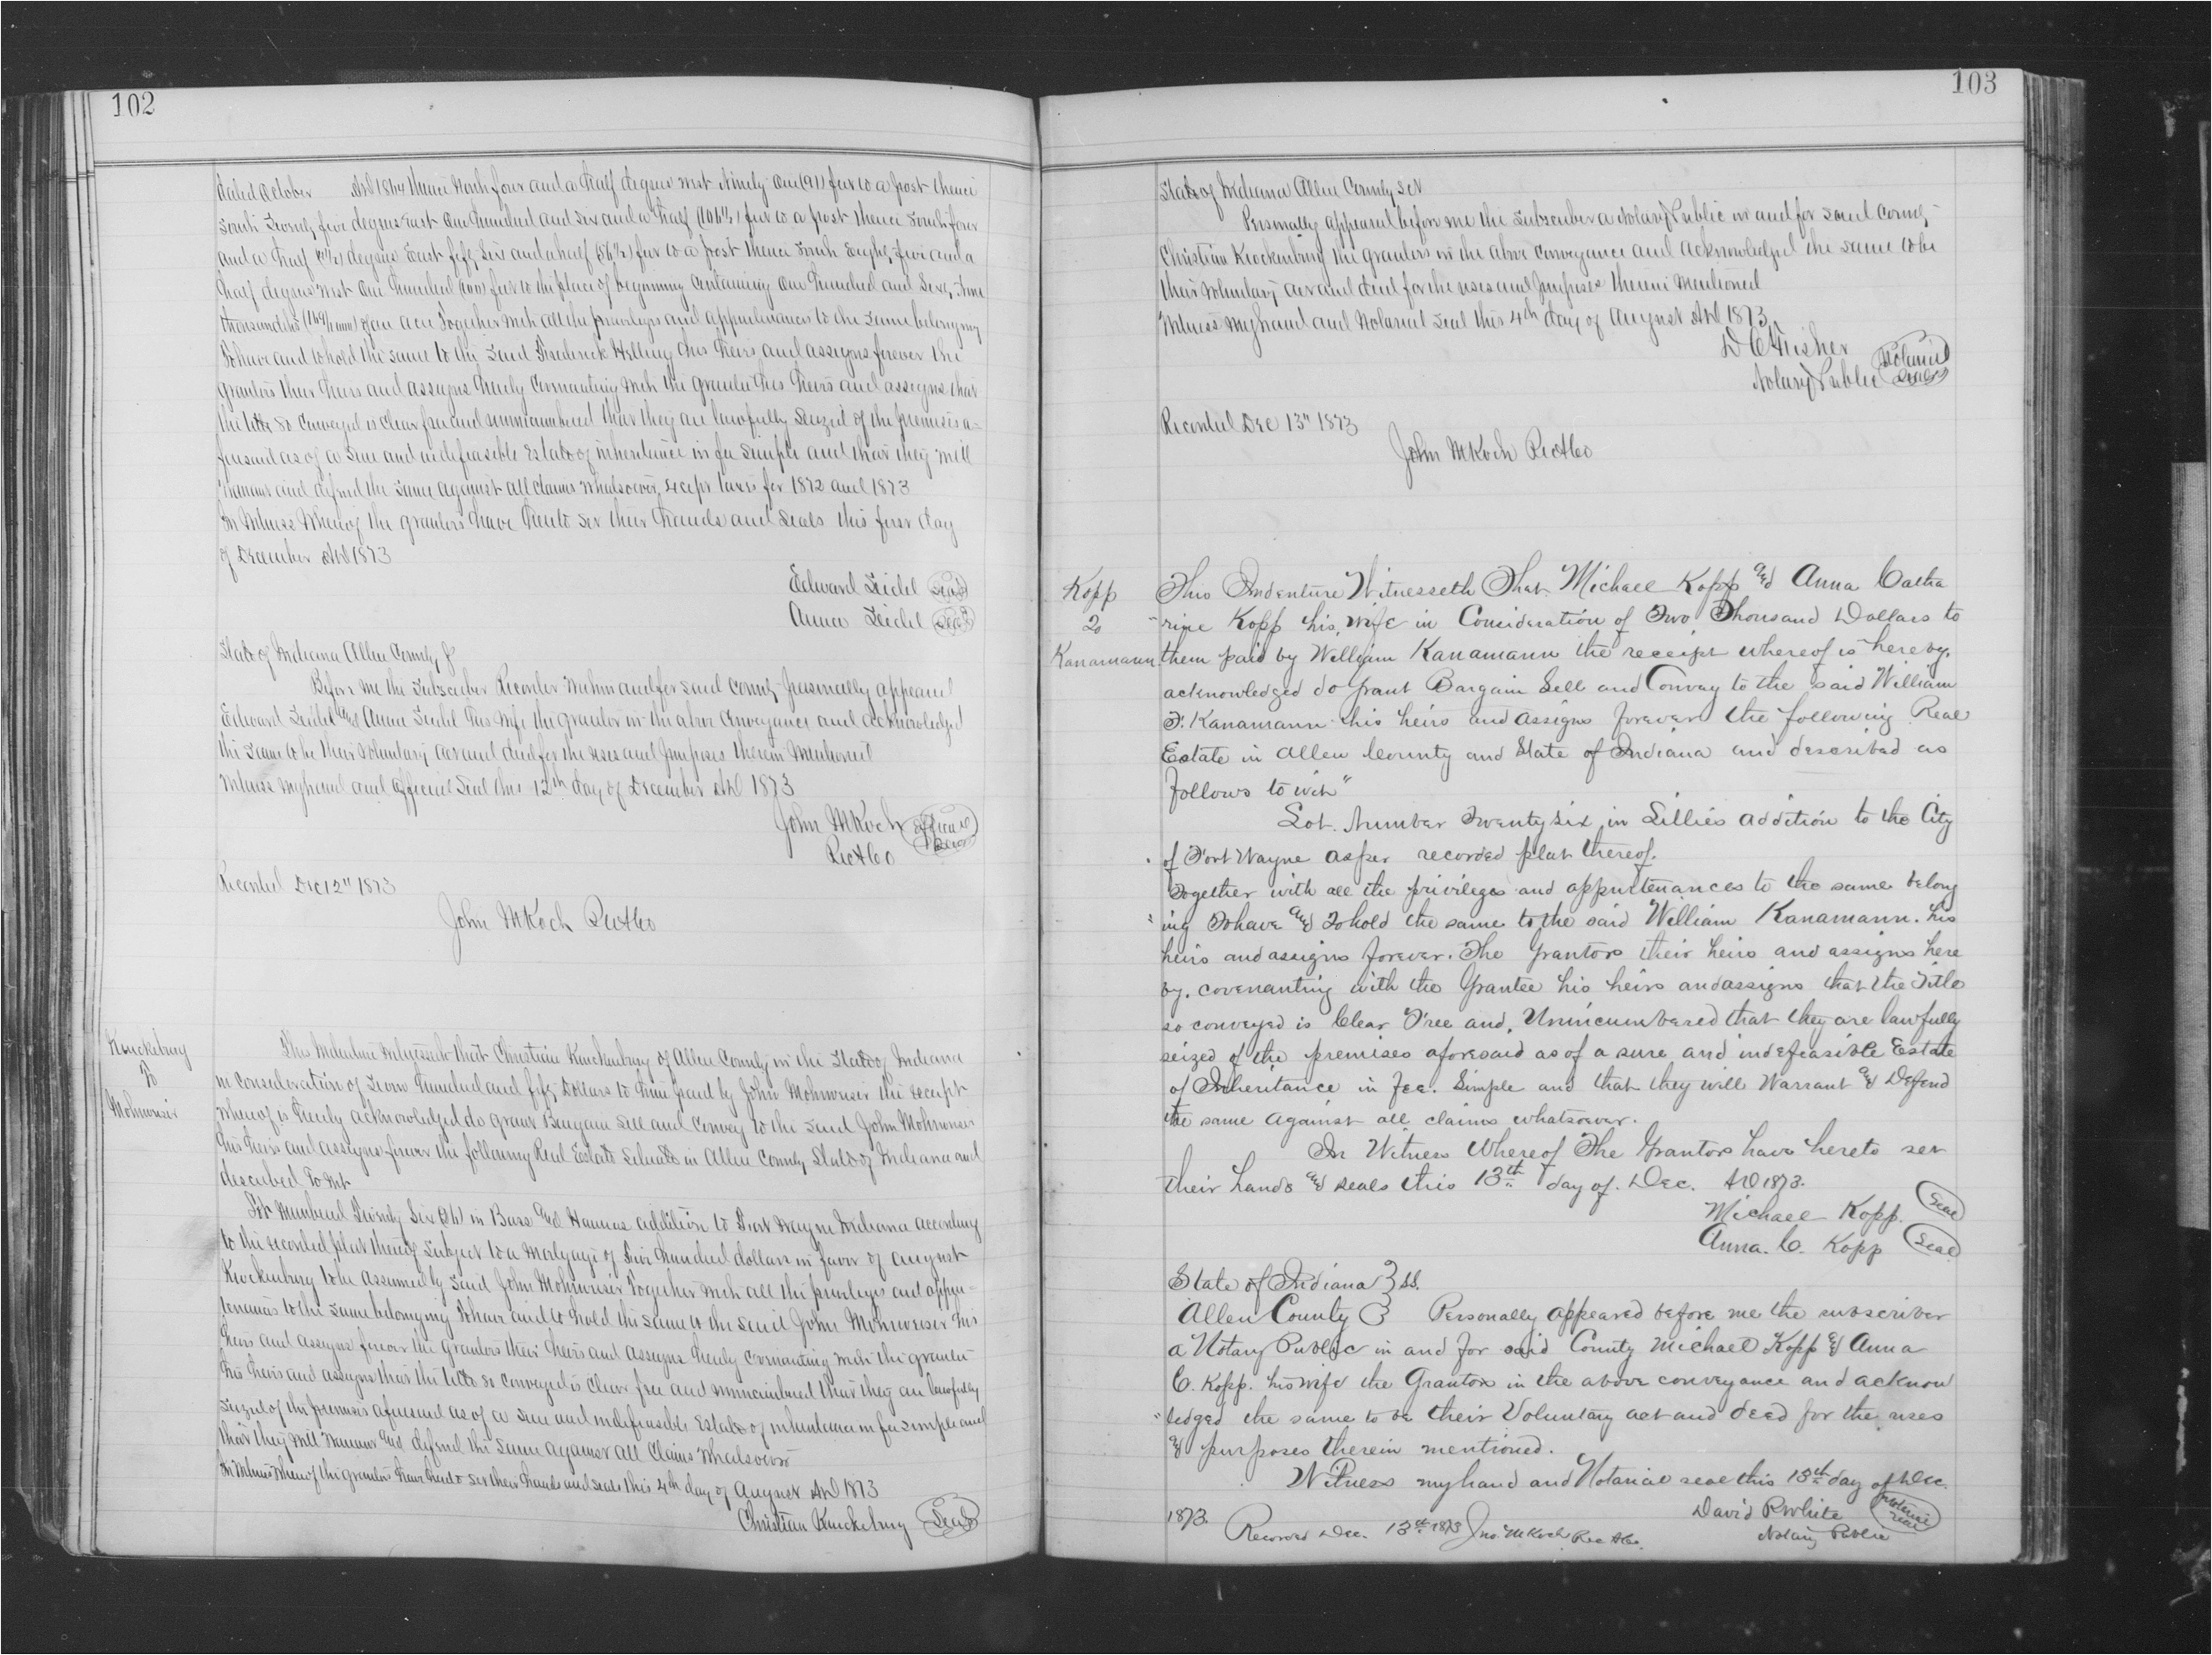 102
dated October AD 1864 thence North four and a half degrees west Ninety One (91) feet to a post thence
South Twenty five degrees East One hundred and six and a half (106½) feet to a post thence South four
and a half (4½) degrees East fifty Six and a half (56½) feet to a post thence South Eighty five and a
half degrees West One hundred (100) feet to the place of beginning Containing One hundred and Sixty Nine
thousandths (169/1000) of an acre Together with all the privileges and appurtenances to the same belonging
To have and to hold the same to the said Frederick Helling his heirs and assigns forever the
grantors their heirs and assigns hereby Covenanting with the grantee his heirs and assigns that
the title so Conveyed is clear free and unincumbered that they are lawfully Seized of the premises a=
foresaid as of a Sure and indefeasible Estate of inheritance in fee Simple and that they will
Warrant and defend the same against all claims whatsoever, except taxes for 1872 and 1873
In Witness Whereof the grantors have hereto set their hands and Seals this first day
of December AD 1873
Edward Seidel Seal
Anna Seidel Seal
State of Indiana Allen County
Before me the Subscriber Recorder Within and for said County personally appeared
Edward Seidel and Anna Seidel his wife the grantor in the above Conveyance and acknowledged
the same to be their voluntary act and deed for the uses and purposes therein Mentioned
Witness my hand and official Seal this 12th day of December AD 1873
John M Koch Official Seal
Rec A Co
Recorded Dec 12" 1873
John M Koch Rec A Co
Kruckeburg
To
Mohrweiser
This Indenture Witnesseth that Christian Kruckeburg of Allen County in the State of Indiana
in Consideration of Seven hundred and fifty Dollars to him paid by John Mohrweiser the receipt
whereof is hereby acknowledged do grant Bargain Sell and Convey to the said John Mohrweiser
his heirs and assigns forever the following Real Estate Situate in Allen County State of Indiana and
described To Wit
Lot Numbered Twenty Six (26) in Bass and Hannas addition to Fort Wayne Indiana according
to the recorded plat thereof Subject to a Mortgage of Five hundred dollars in favor of August
Kruckeburg to be assumed by said John Mohrweiser Together with all the privileges and appur=
tenances to the same belonging To have and to hold the same to the said John Mohrweiser his
heirs and assigns forever the grantors their heirs and assigns hereby Covenanting with the grantee
his heirs and assigns that the title so conveyed is clear free and unincumbered that they are lawfully
Seized of the premises aforesaid as of a Sure and indefeasible Estate of inheritance in fee simple and
that they will Warrant and defend the same against all Claims Whatsoever
In Witness Whereof the grantors have hereto set their hands and seals this 4th day of August AD 1873
Christian Kruckeburg Seal
103
State of Indiana Allen County Sct
Personally appeared before me the Subscriber a Notary Public in and for said County
Christian Kruckenburg the grantors in the above conveyance and acknowledged the same to be
their voluntary act and deed for the uses and purposes therein Mentioned
Witness my hand and Notarial Seal this 4th day of August AD 1873
D C Fisher
Notary Public Notarial Seal
Recorded Dec 13" 1873
John M Koch Rec A Co
Kopp
To
Kanamann
This Indenture Witnesseth That Michael Kopp and Anna Catha
rine Kopp his, wife in Consideration of Two Thousand Dollars to
them paid by William Kanamann the receipt whereof is hereby.
acknowledged do grant Bargain Sell and Convay to the said William
F. Kanamann his heirs and assigns forever the following Real
Estate in Allen County and State of Indiana and described as
Follows to wit"
Lot. Number Twenty Six, in Lillies addition to the City
of Fort Wayne as per recorded plat thereof.
Together with all the privileges and appurtenances to the same belong
ing To have and To hold the same to the said William Kanamann. his
heirs and assigns forever. The Grantors their heirs and assigns here
by. covenanting with the Grantee his heirs and assigns that the Title
so conveyed is Clear Free and, Unincumbered that they are lawfully
seized of the premises aforesaid as of a sure and indefeasible Estate
of Inheritance in Fee. Simple and that they will Warrant and Defend
the same against all claims whatsoever.
In Witness Whereof The Grantors have hereto set
their hands and seals this 13th day of. Dec. AD 1873.
Michael Kopp. Seal
Anna. C. Kopp Seal
State of Indiana } SS.
Allen County } Personally appeared before me the subscriber
a Notary Public in and for said County Michael Kopp and Anna
C. Kopp. his wife the Grantors in the above conveyance and acknow
ledged the same to be their Voluntary act and deed for the uses
and purposes therein mentioned.
Witness my hand and Notarial seal this 13th day of Dec.
1873. David P. White Notarial Seal
Recorded Dec. 13th 1873 Jno M Koch Rec A Co. Notary Public